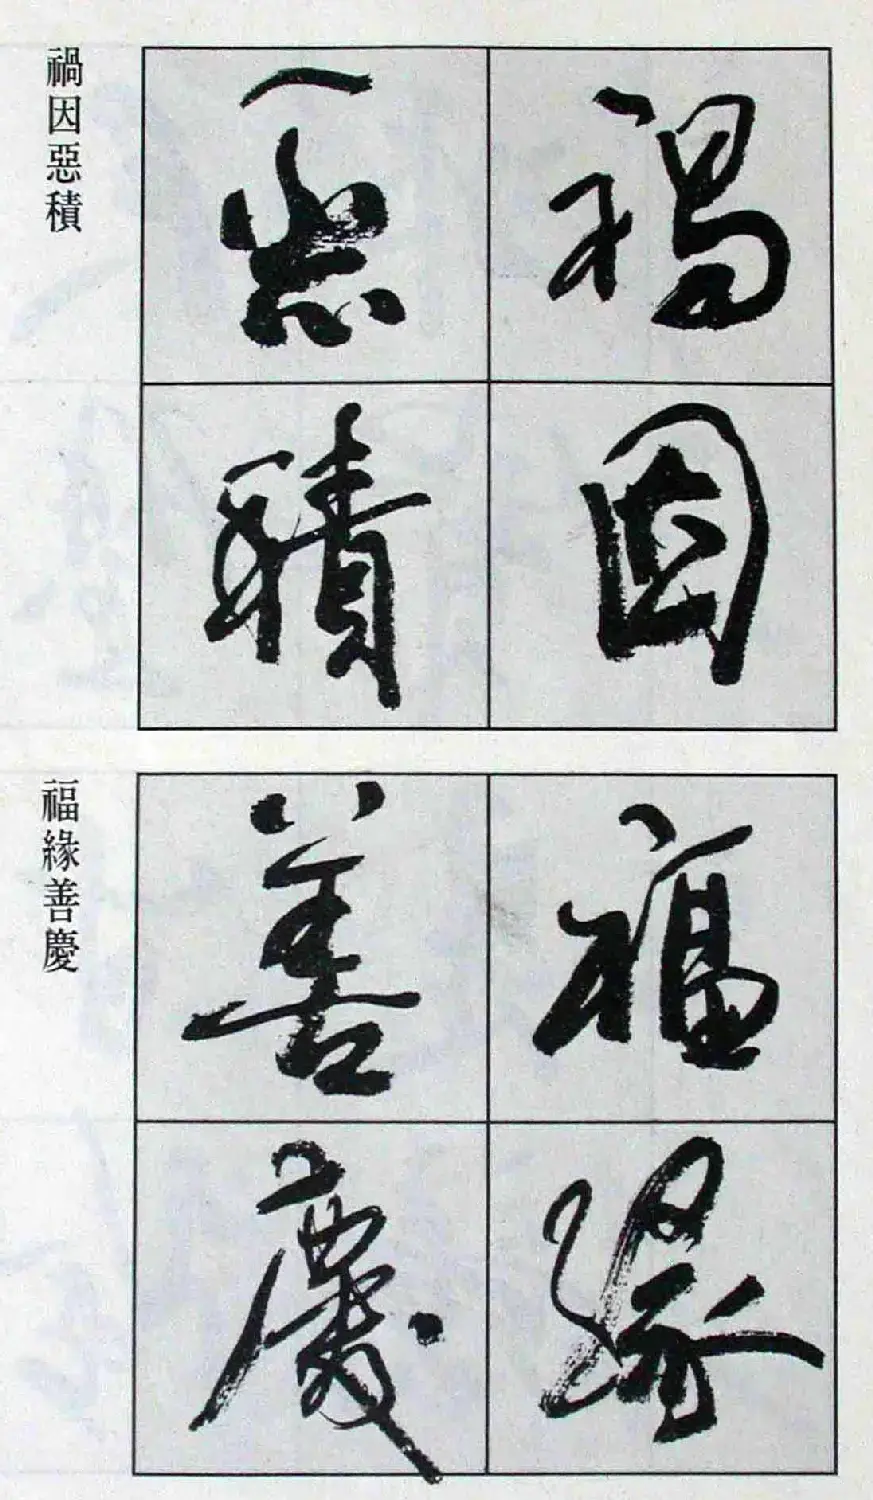 禍因
惡積
禍因惡積
福緣
善慶
福緣善慶